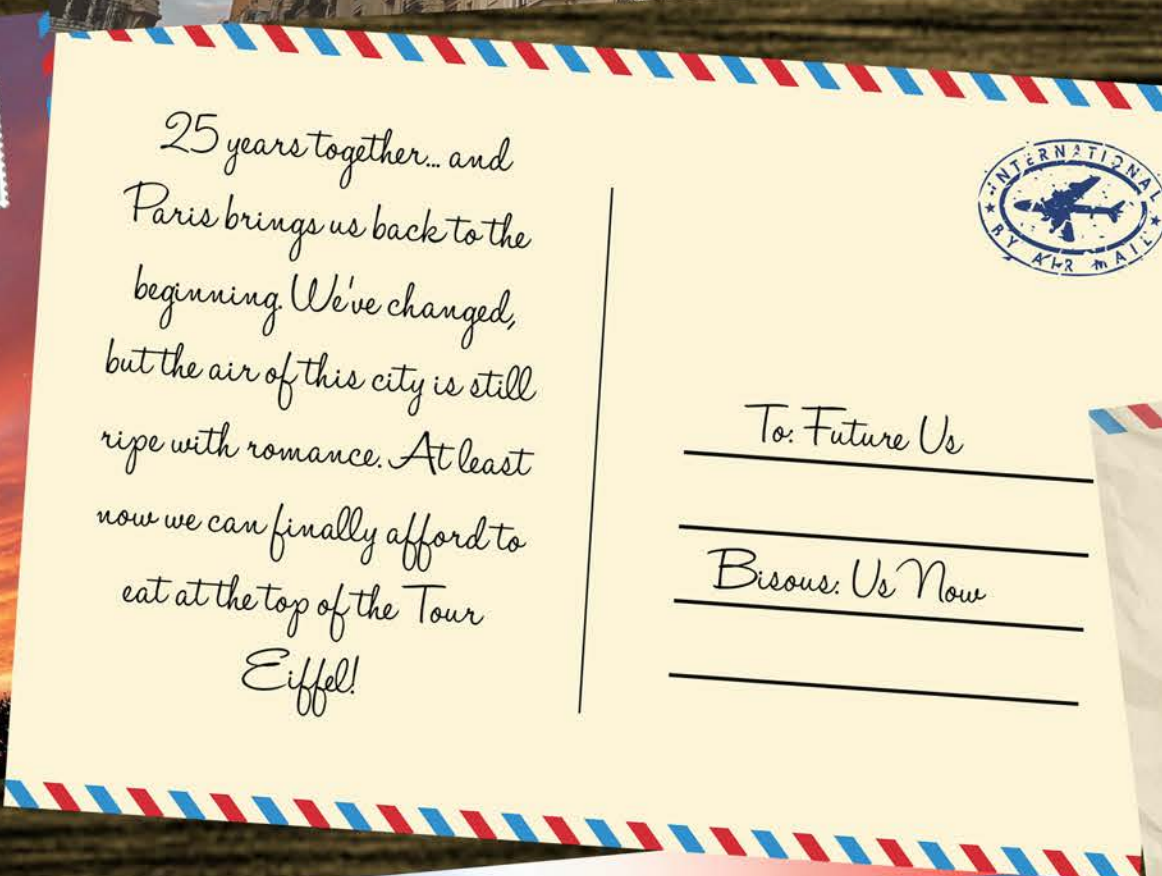 25 years together... and
Paris brings us back to the
beginning. We've changed,
but the air of this city is still
ripe with romance. At least
now we can finally afford to
eat at the top of the Tour
Eiffel!
INTERNATIONAL
BY AIR MAIL
To: Future Us
Bisous: Us Now